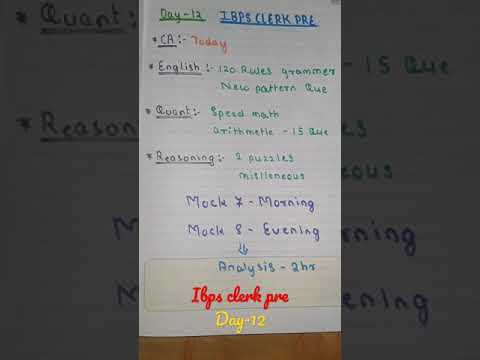 Day-12 IBPS CLERK PRE
* CA:- Today
* English:- 120 Rules grammer
New pattern Que
* Quant:- Speed math
arithmetic - 15 Que
* Reasoning:- 2 puzzles
mislleneous
Mock 7 - Morning
Mock 8 - Evening
⇓
Analysis - 2hr
Ibps clerk pre
Day-12